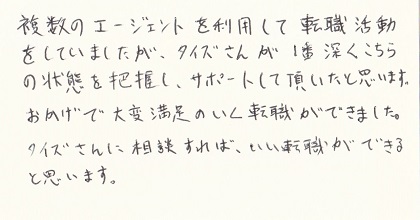 複数のエージェントを利用して転職活動
をしていましたが、タイズさんが1番深くこちら
の状態を把握し、サポートして頂いたと思います。
おかげで大変満足のいく転職ができました。
タイズさんに相談すれば、いい転職ができる
と思います。